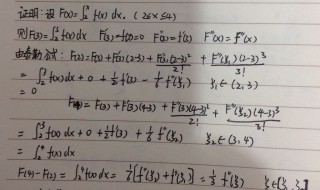 证明: 设 F(x)=∫₂ˣ f(x) dx. (2≤x≤4)
则 F(3)=∫₂³ f(x)dx F'(3)=f(3)=0 F''(x)=f'(x) F'''(x)=f''(x)
由泰勒公式: F(2)=F(3)+F'(3)(2-3)+F''(3)(2-3)²/2!+F'''(ξ₁)(2-3)³/3!
=∫₂³ f(x)dx+0+½f'(3)-⅙f''(ξ₁) ξ₁∈(2,3)
=0
F(4)=F(3)+F'(3)(4-3)+F''(3)(4-3)²/2!+F'''(ξ₂)(4-3)³/3!
=∫₂³ f(x)dx+0+½f'(3)+⅙f''(ξ₂) ξ₂∈(3,4)
=∫₂⁴ f(x)dx
F(4)-F(2)=∫₂⁴ f(x)dx=⅙[f''(ξ₁)+f''(ξ₂)]=⅓f''(ξ)